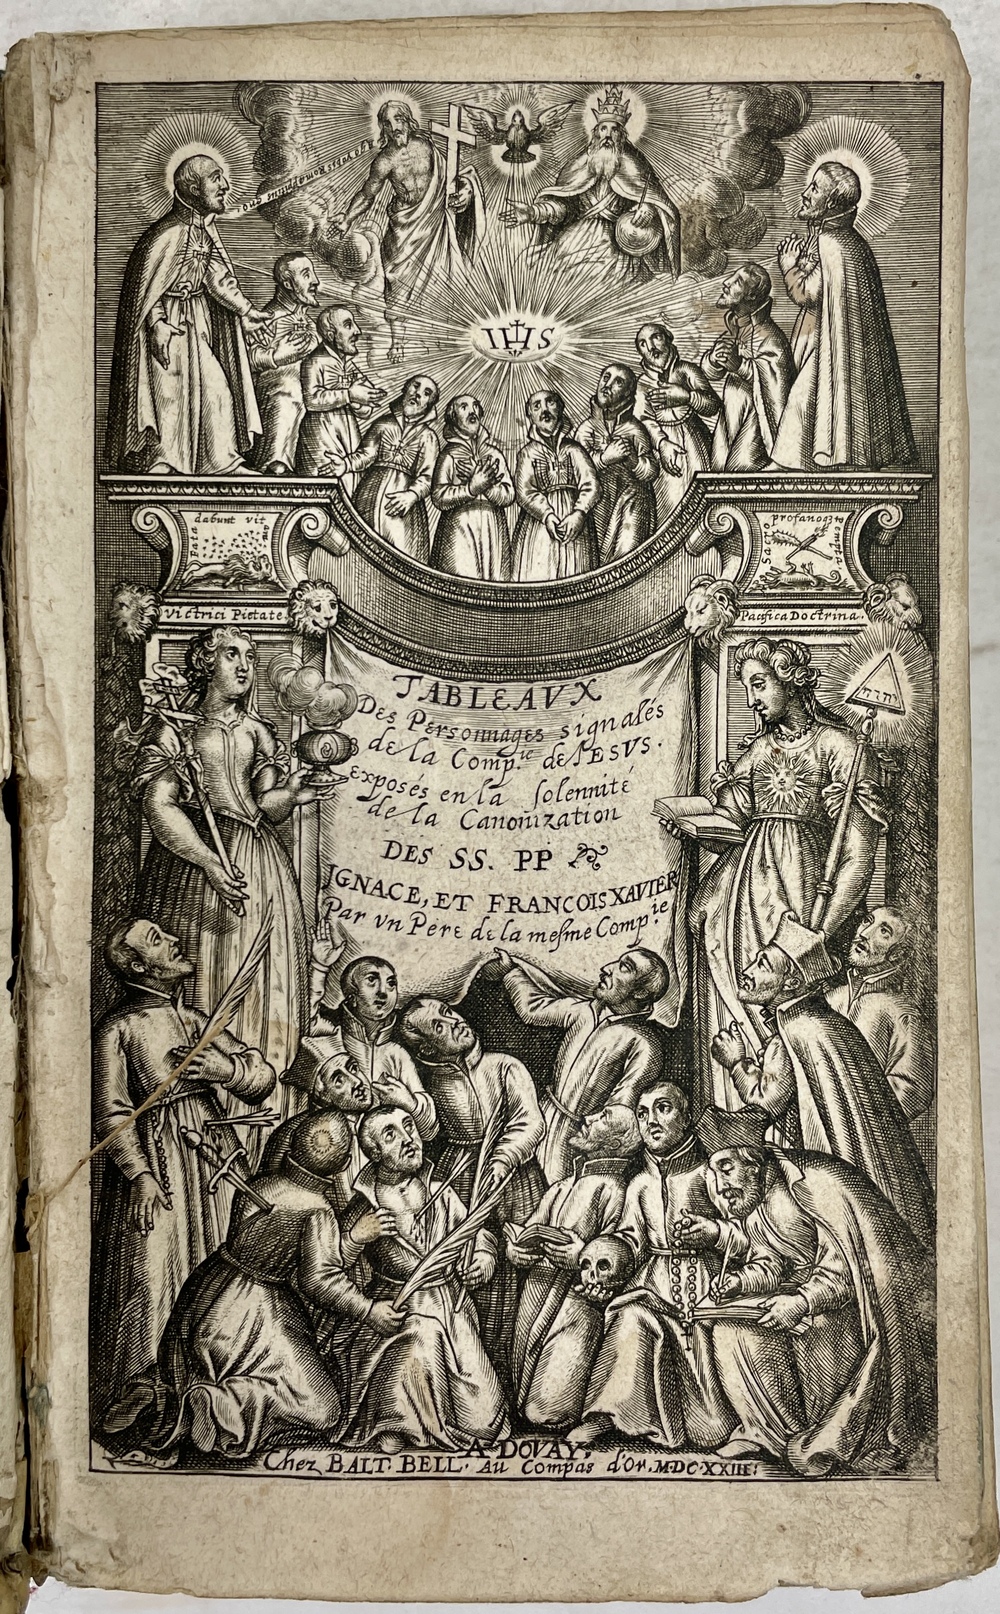 Ego vobis Romae propitius ero.
IHS
Fata dabunt vitam
Sacro profanos ex templo
Victrici Pietate
Pacifica Doctrina.
יהוה
TABLEAVX
Des Personnages signalés
de la Comp.ie de IESVS.
exposés en la solennité
de la Canonization
DES SS. PP
IGNACE, ET FRANCOIS XAVIER
Par vn Pere de la mesme Compie
A DOVAY:
Chez BALT. BELL. Au Compas d'Or. MDCXXIII: